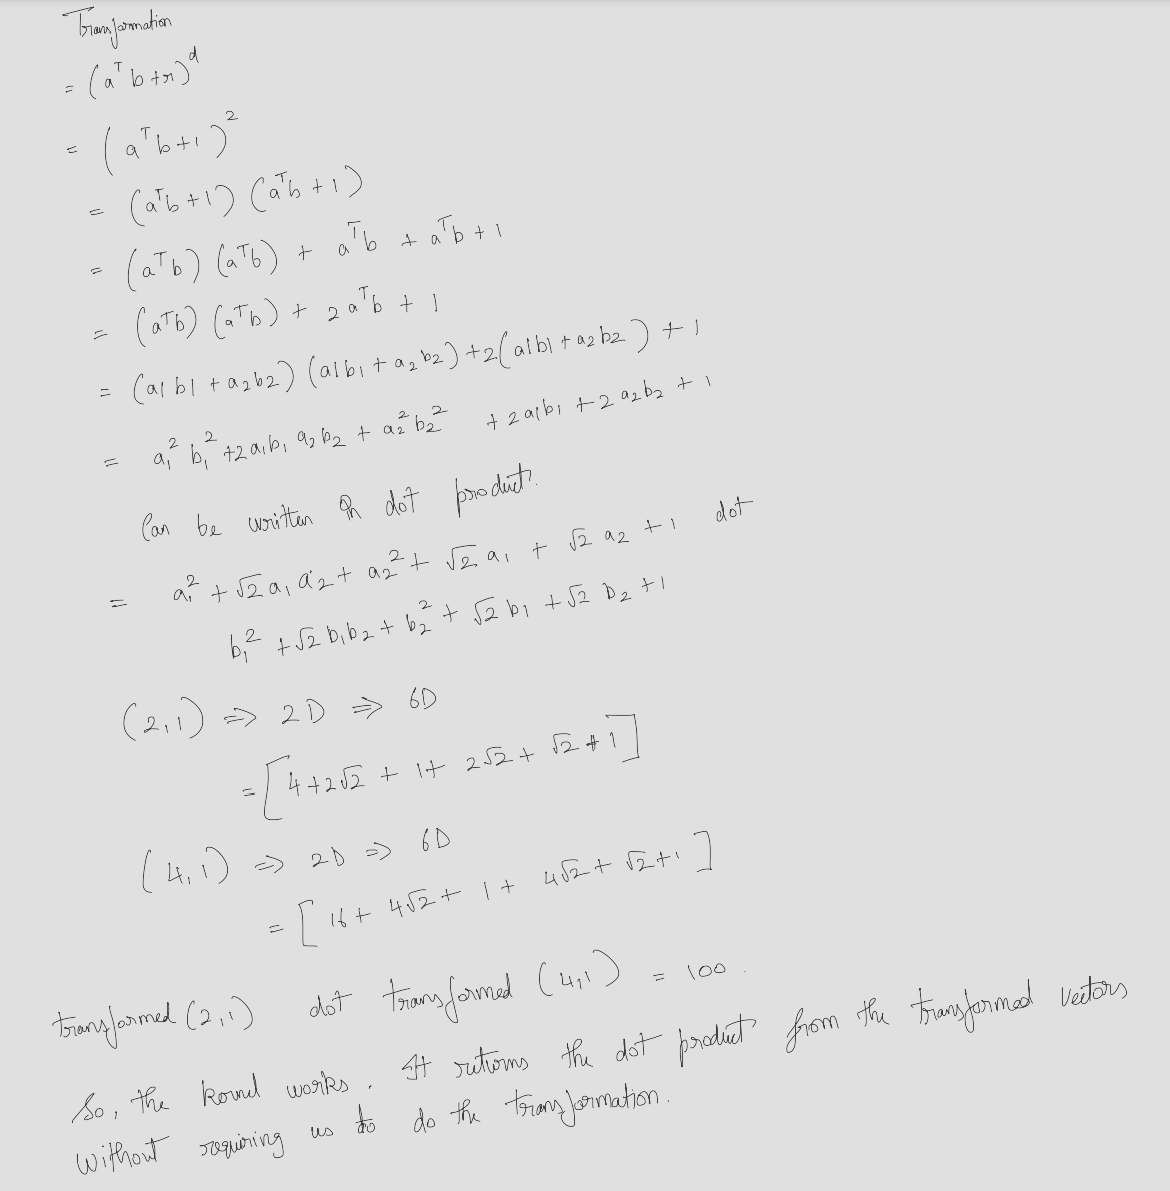 Transformation
= (aᵀb+r)ᵈ
= (aᵀb+1)²
= (aᵀb+1) (aᵀb+1)
= (aᵀb) (aᵀb) + aᵀb + aᵀb + 1
= (aᵀb) (aᵀb) + 2aᵀb + 1
= (a1b1 + a2b2) (a1b1 + a2b2) + 2(a1b1 + a2b2) + 1
= a₁² b₁² + 2a₁b₁ a₂b₂ + a₂² b₂² + 2a₁b₁ + 2a₂b₂ + 1
Can be written in dot product.
= a₁² + √2 a₁ a₂ + a₂² + √2 a₁ + √2 a₂ + 1 dot
b₁² + √2 b₁b₂ + b₂² + √2 b₁ + √2 b₂ + 1
(2,1) ⇒ 2D ⇒ 6D
= [4 + 2√2 + 1 + 2√2 + √2 + 1]
(4,1) ⇒ 2D ⇒ 6D
= [16 + 4√2 + 1 + 4√2 + √2 + 1]
transformed (2,1) dot transformed (4,1) = 100.
So, the kernel works. It returns the dot product from the transformed vectors
without requiring us to do the transformation.